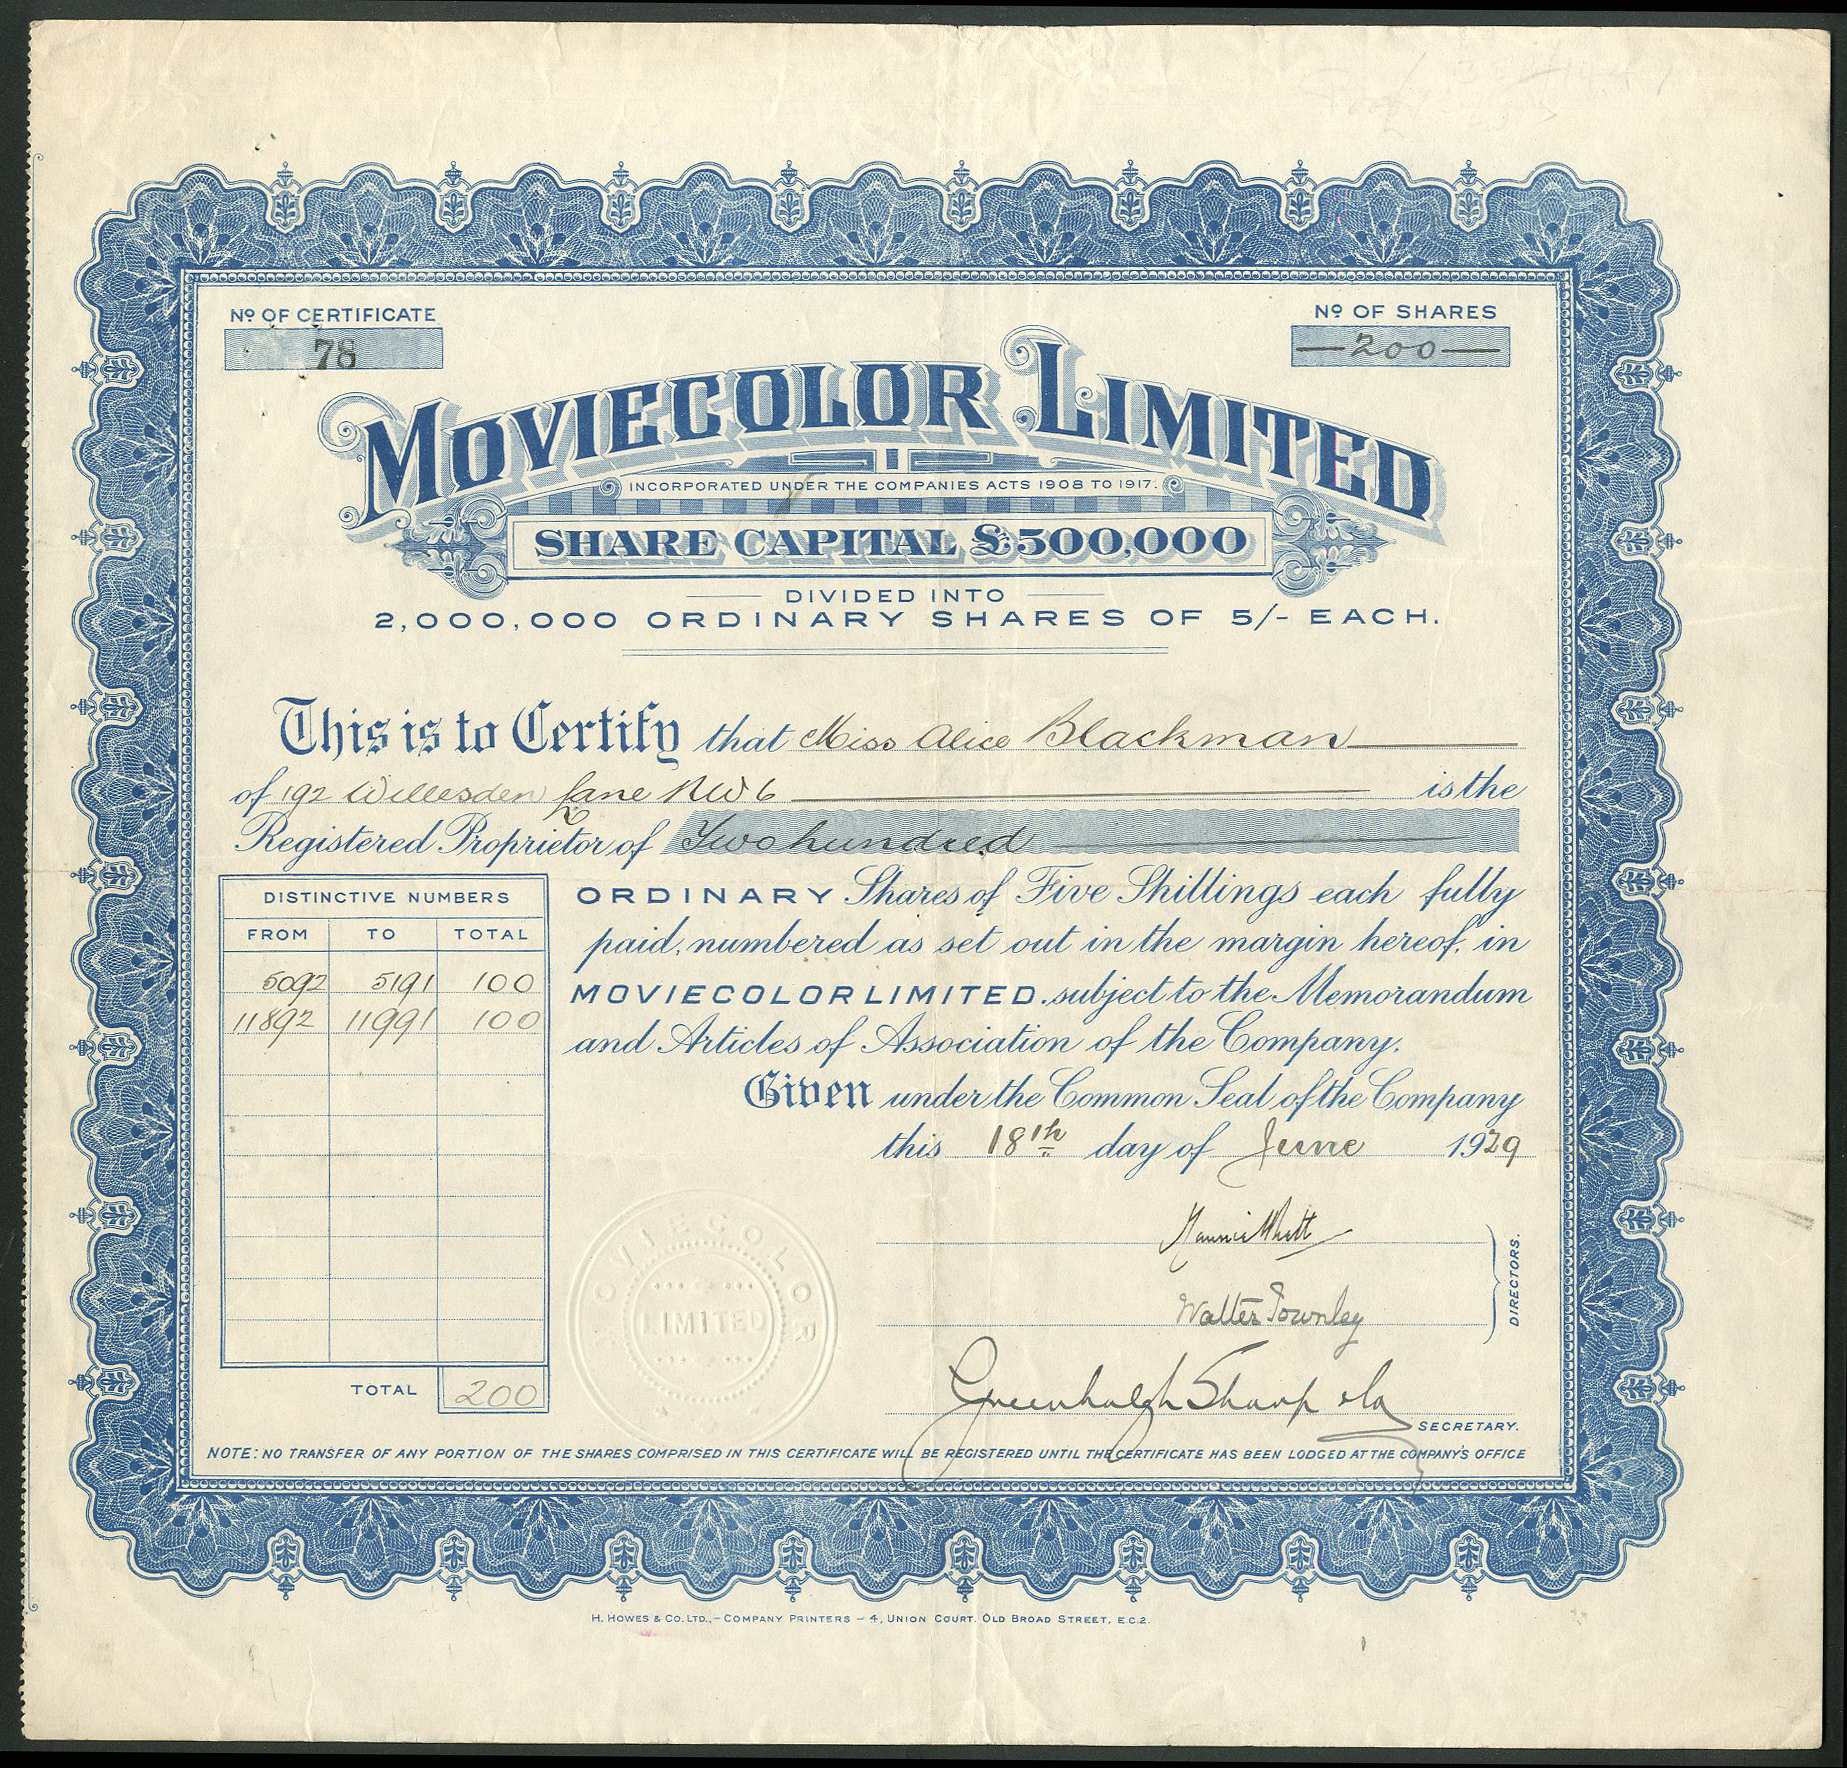 Nº OF CERTIFICATE
78
Nº OF SHARES
200
MOVIECOLOR LIMITED
INCORPORATED UNDER THE COMPANIES ACTS 1908 TO 1917.
SHARE CAPITAL £500,000
DIVIDED INTO
2,000,000 ORDINARY SHARES OF 5/- EACH.
This is to Certify that Miss Alice Blackman
of 192 Willesden Lane NW6 is the
Registered Proprietor of Two hundred
ORDINARY Shares of Five Shillings each fully
paid, numbered as set out in the margin hereof, in
MOVIECOLOR LIMITED, subject to the Memorandum
and Articles of Association of the Company.
Given under the Common Seal of the Company
this 18th day of June 1929
DISTINCTIVE NUMBERS
FROM TO TOTAL
5092 5191 100
11892 11991 100
TOTAL 200
MOVIECOLOR
LIMITED
Walter Townley
DIRECTORS.
Greenhalgh Sharp
SECRETARY.
NOTE: NO TRANSFER OF ANY PORTION OF THE SHARES COMPRISED IN THIS CERTIFICATE WILL BE REGISTERED UNTIL THE CERTIFICATE HAS BEEN LODGED AT THE COMPANY'S OFFICE
H. HOWES & CO. LTD., – COMPANY PRINTERS – 4, UNION COURT, OLD BROAD STREET, E.C.2.